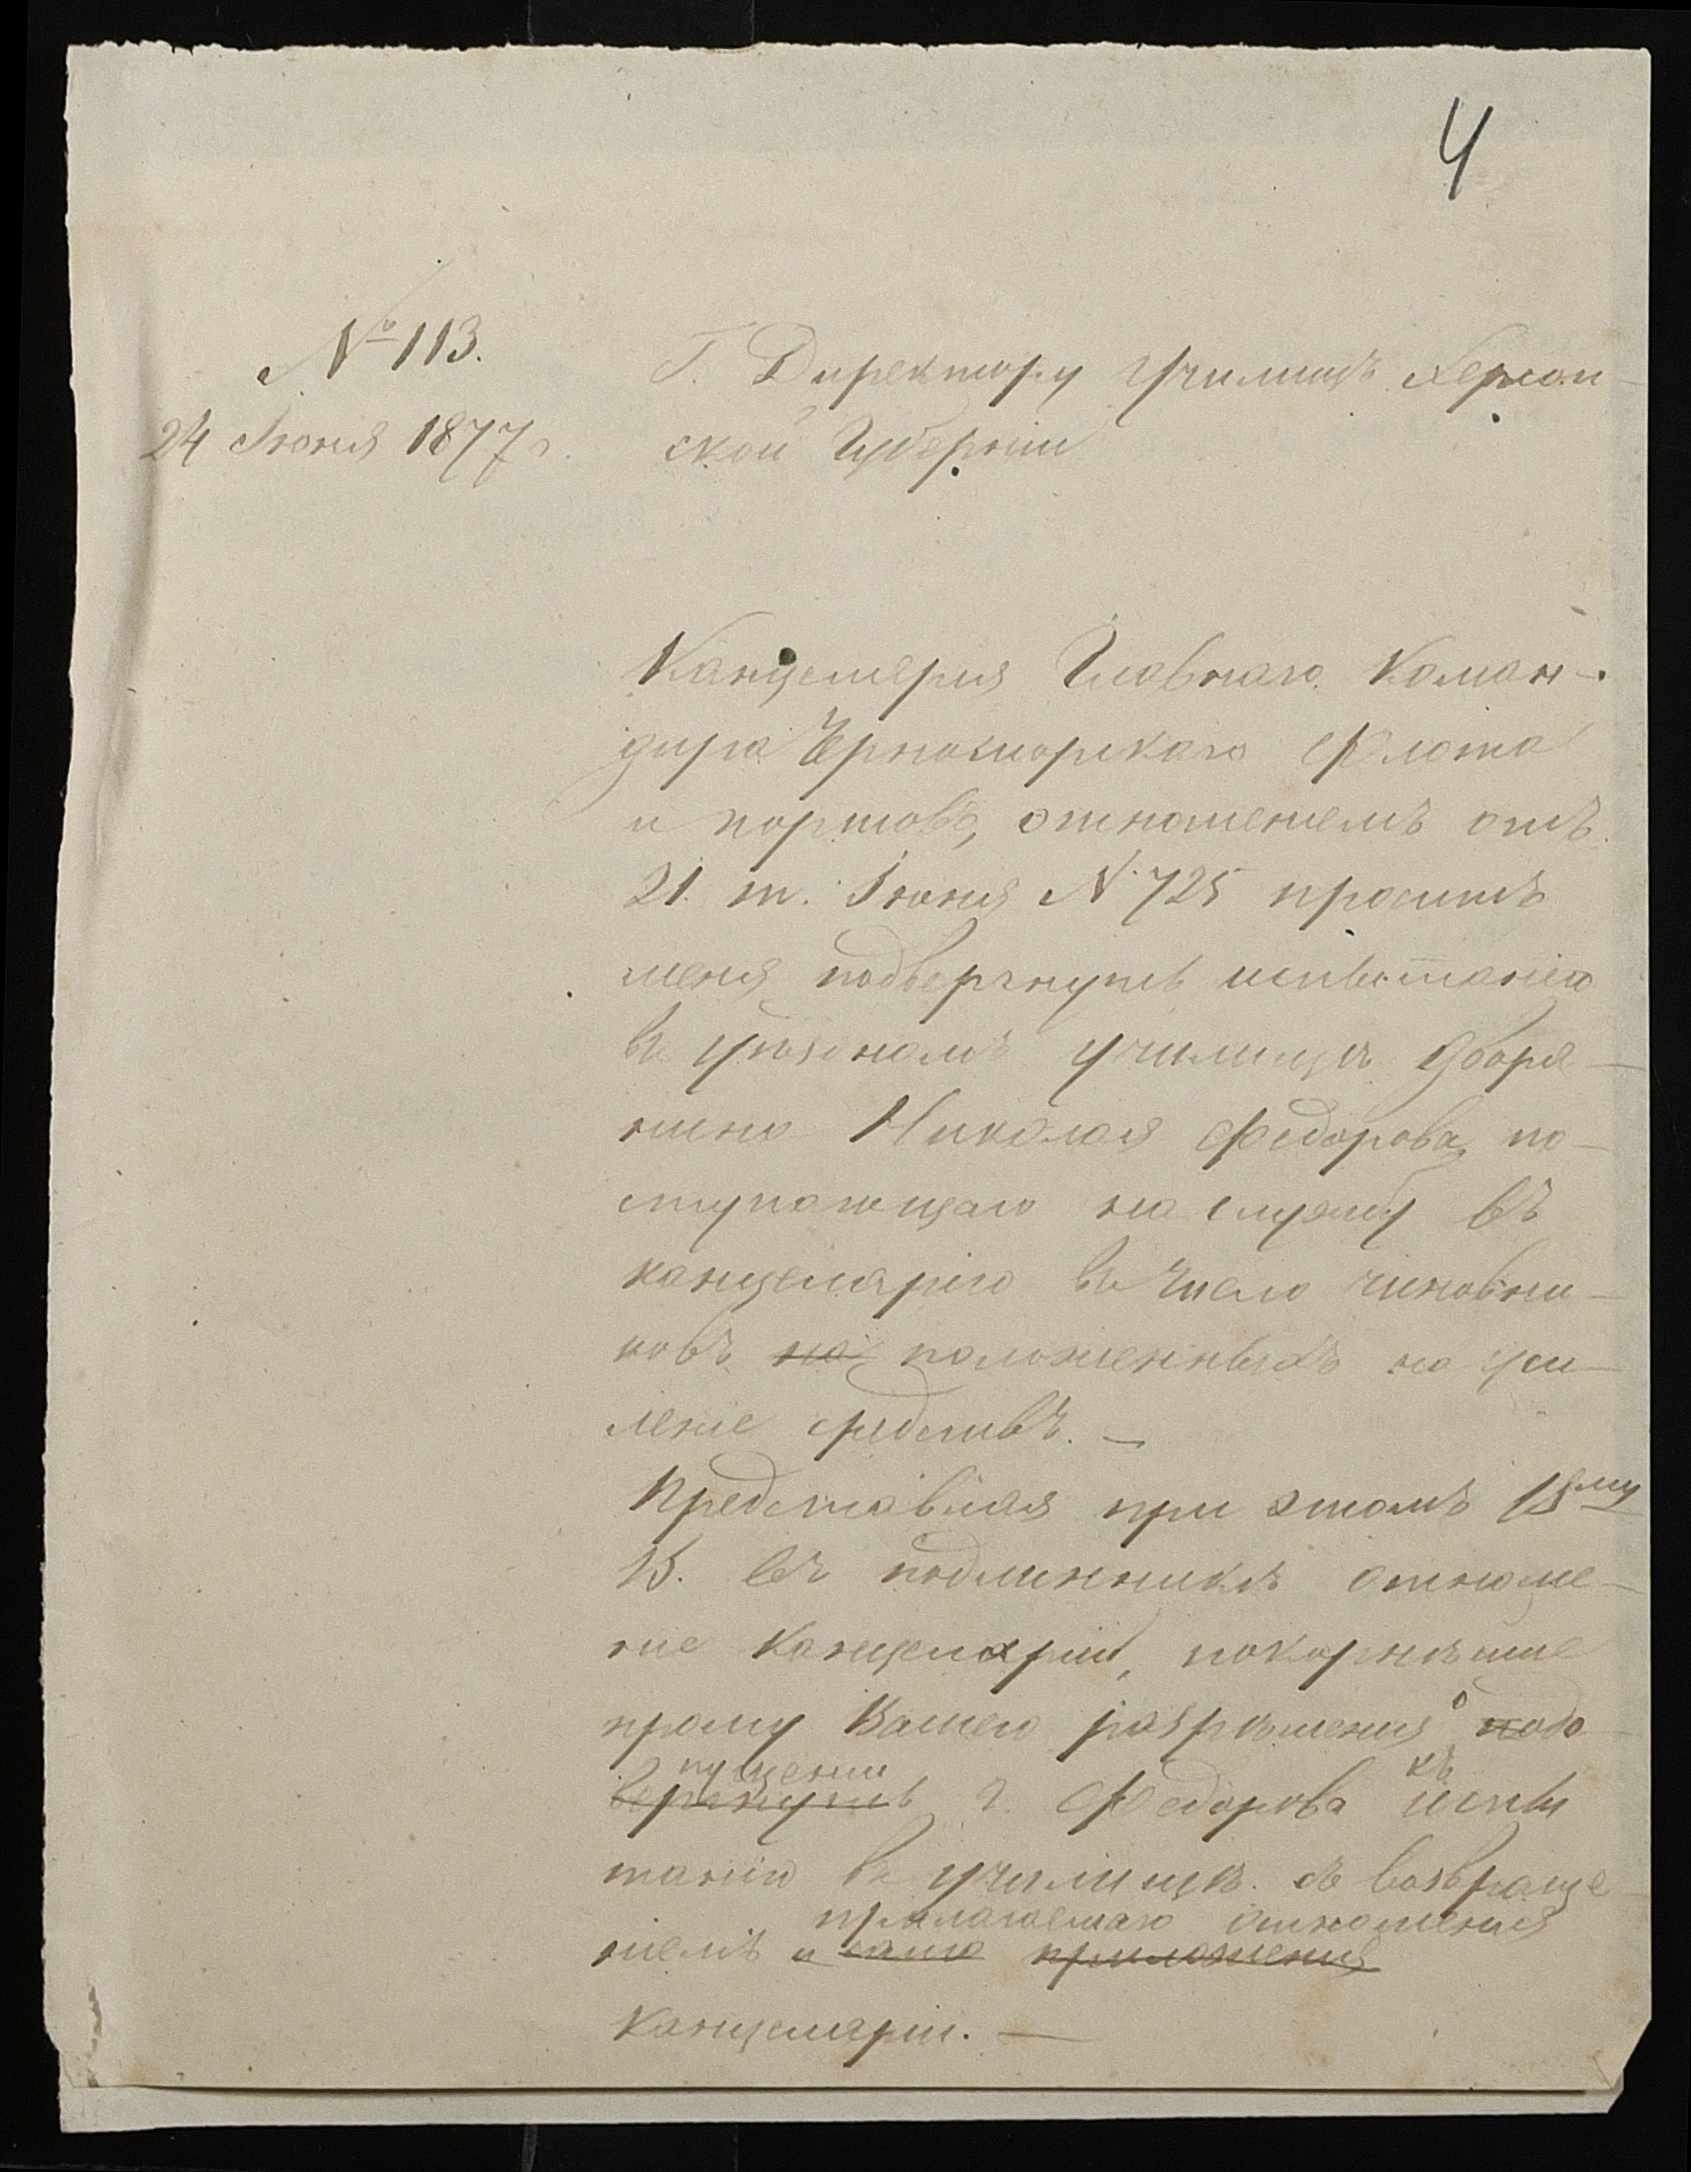 4
№ 113.
24 Іюня 1877 г.
Г. Директору Училищъ Херсон-
ской Губерніи
Канцелерія Главнаго Коман-
дира Черноморскаго Флота
и портовъ, отношеніемъ отъ
21 т. Іюня № 725 проситъ
меня подвергнуть испытанію
въ уѣздномъ училищѣ дворя-
нина Николая Федорова, по-
ступающаго на службу въ
канцелярію въ число чиновни-
ковъ на положенныхъ на уси-
леніе средствъ. —
Представляя при этомъ
В. въ подлинникѣ отноше-
ніе Канцеляріи, покорнѣйше
прошу Вашего разрѣшенія подо
пущеніи къ
вергнуть г. Федорова испы
танію въ училищѣ съ возвраще-
прилагаемаго отношенія
ніемъ и приложенія
Канцеляріи. —